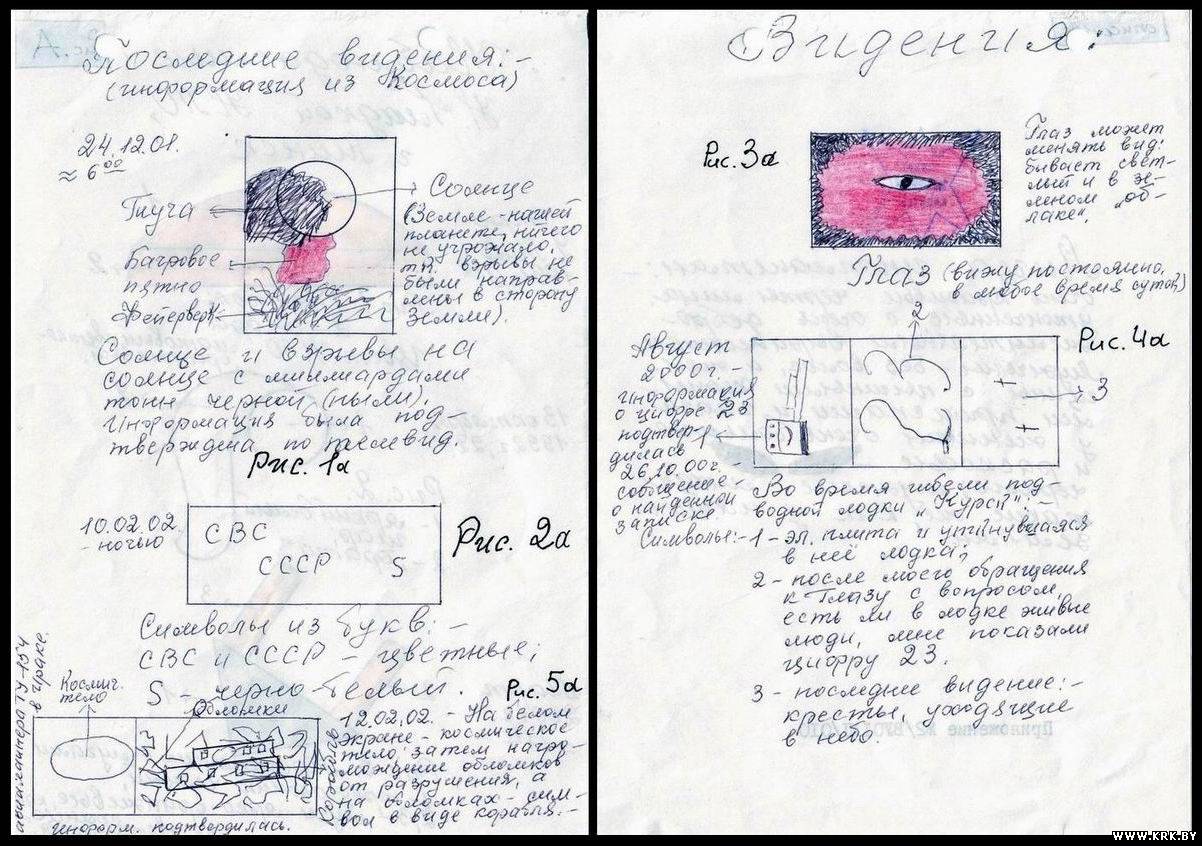 А.
Последние видения:-
(информация из Космоса)
24.12.01.
≈ 6⁰⁰
Туча
Багровое
пятно
Фейерверк
Солнце
(Земле - нашей
планете, ничего
не угрожало,
т.к. взрывы не
были направ-
лены в сторону
Земли).
Солнце и взрывы на
солнце с миллиардами
тонн черной (пыли).
Информация была под-
тверждена по телевид.
Рис. 1а
10.02.02.
- ночью
СВС
СССР S
Рис. 2а
Символы из букв:-
СВС и СССР - цветные;
S - черно-белый.
Рис. 5а
Космич.
тело
Обломки
Корабль
12.02.02. - На белом
экране - космическое
тело, затем нагро-
мождение обломков
от разрушения, а
на обломках - сим-
вол в виде корабля:-
авиалайнера ТУ-154
в Ираке.
информ. подтвердилась.
Видения:
Рис. 3а
Глаз может
менять вид:
бывает свет-
лый и в зе-
леном "об-
лаке".
Глаз (вижу постоянно,
в любое время суток)
Август
2000г. -
информация
о цифре 23
подтвер-
дилась
26.10.00г. -
сообщение
о найденной
записке.
1
2
3
Рис. 4а
Во время гибели под-
водной лодки "Курск":-
Символы:- 1 - эл. плита и утянувшаяся
в неё лодка;
2 - после моего обращения
к Глазу с вопросом,
есть ли в лодке живые
люди, мне показали
цифру 23.
3 - последнее видение:-
кресты, уходящие
в небо.
WWW.KRK.BY